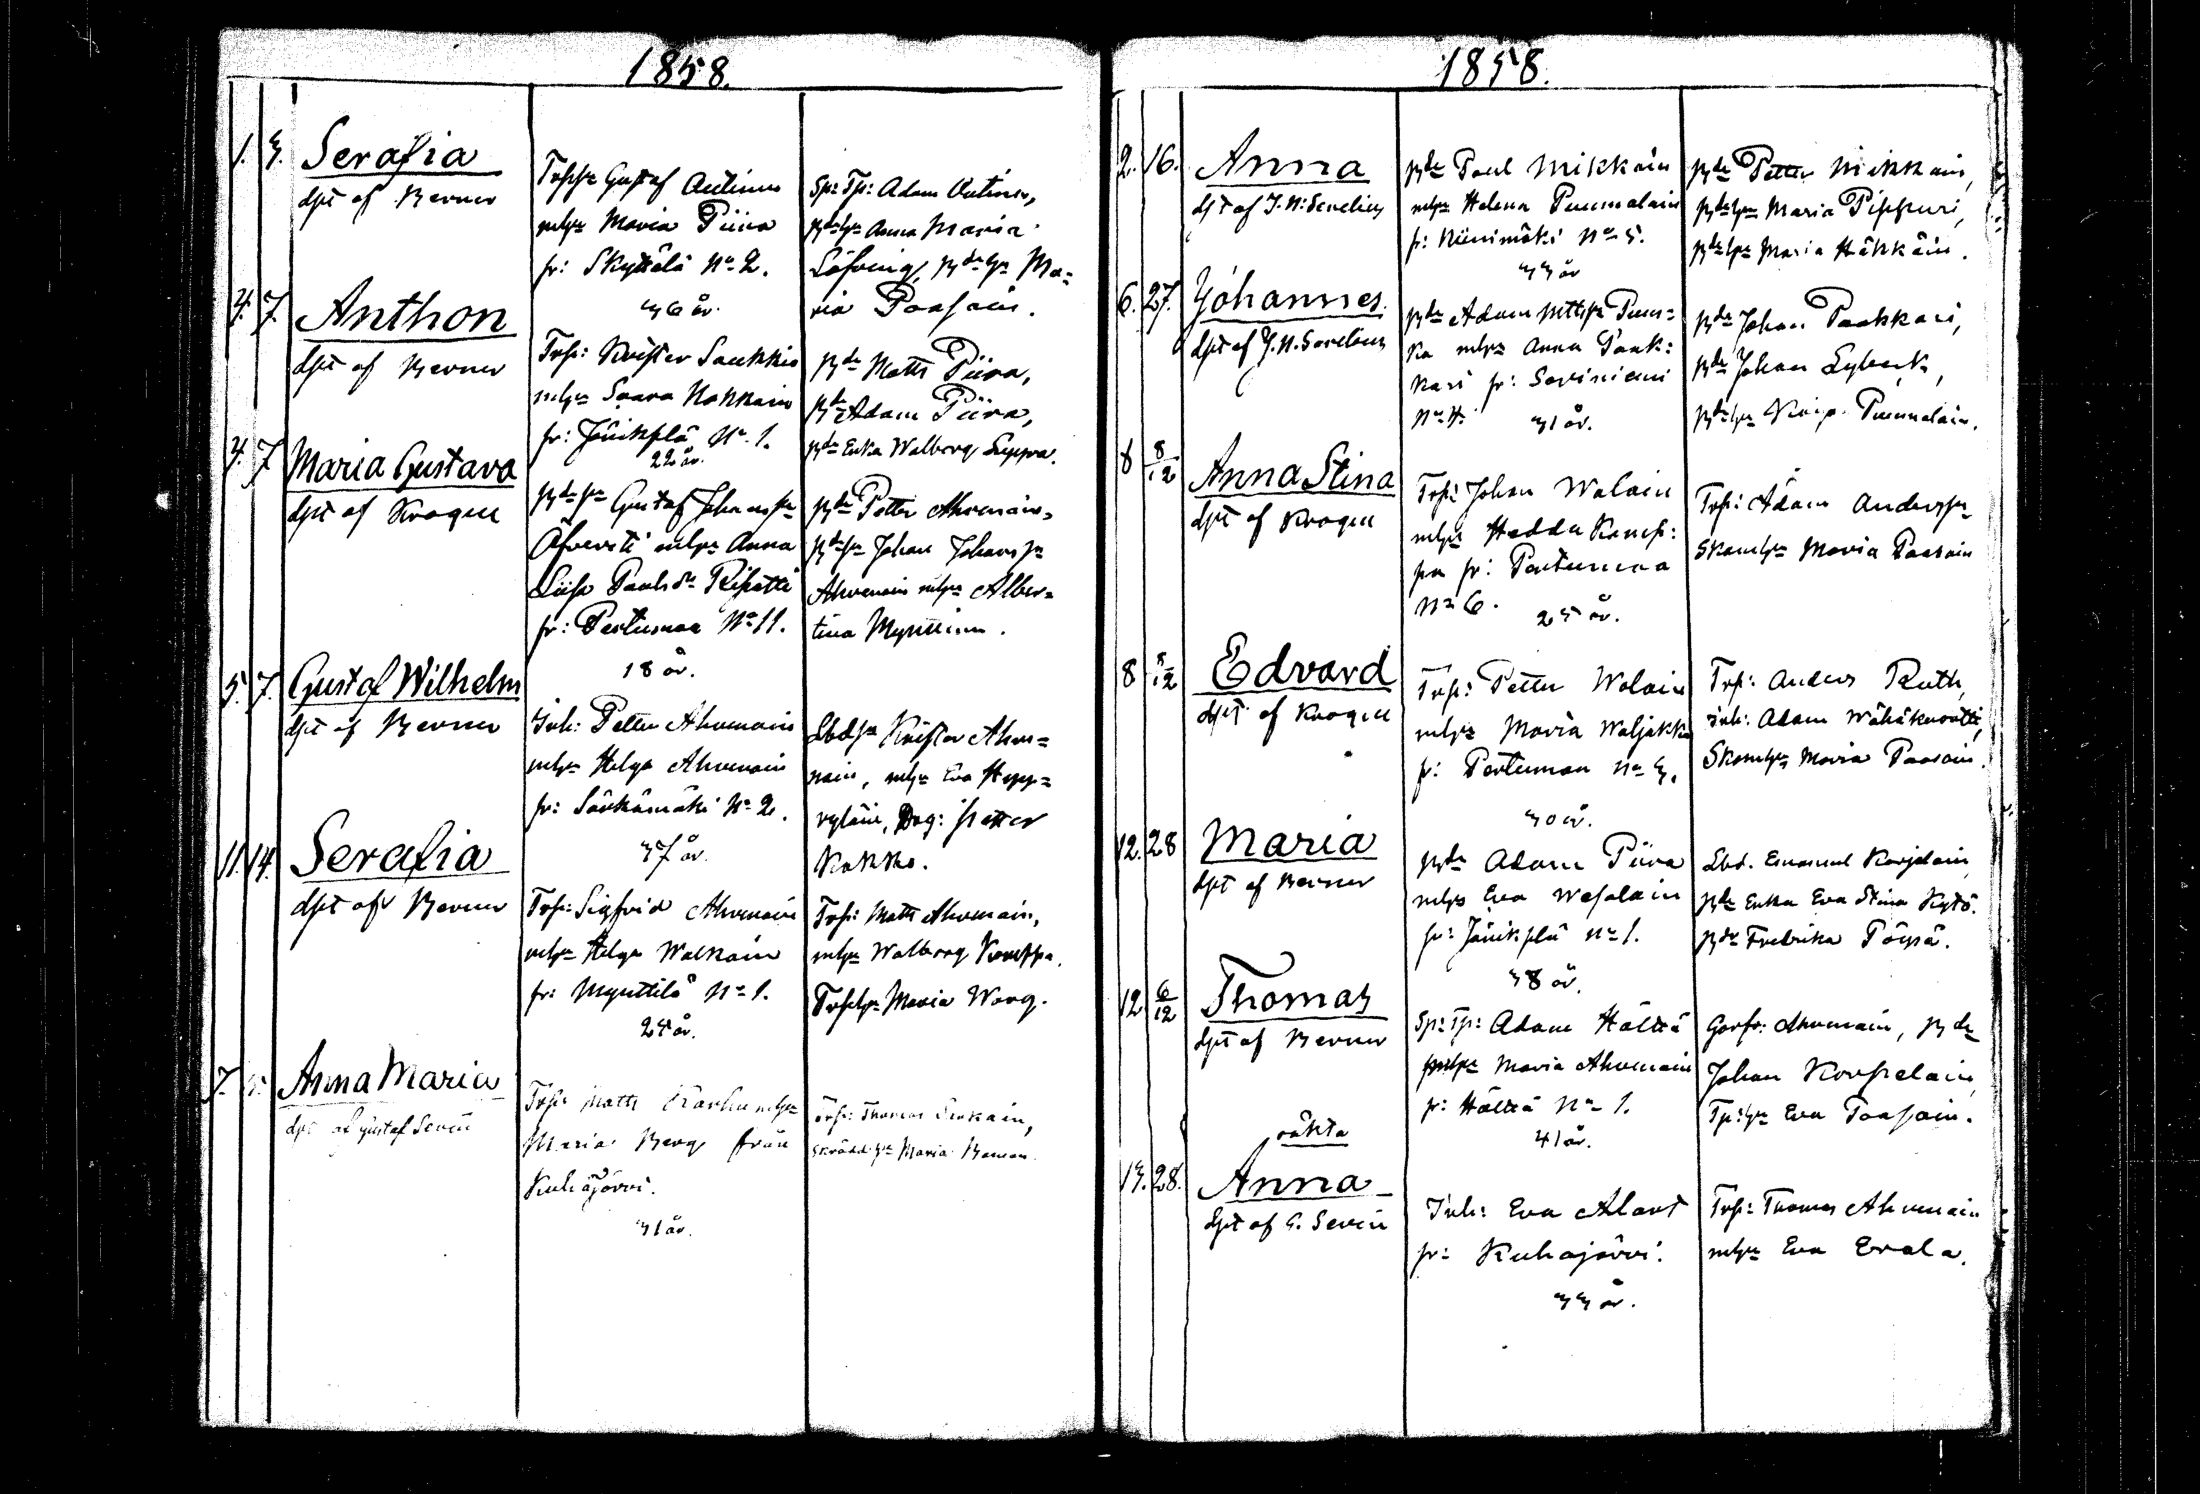 1858.
1. 3. Serafia
dpt af Berner
Trpsn Gustaf Autinen
mhn Maria Piira
fr: Skyttälä No 2.
36 år.
Sp: Tp: Adam Autinen,
Bdehn Anna Maria
Löfving, Bdehn Ma=
ria Paasoin.
4. 7. Anthon
dpt af Berner
Trp: Krister Saukkio
mhn Saara Kokkoin
fr: No 1.
22 år.
Bde Matts Piira,
Bde Adam Piira,
Bde Enka Walborg Seppä.
4. 7. Maria Gustava
dpt af Krogell
Bdesn Gustaf Johanssn
mhn Anna
Liisa Paulsdr Ripatti
fr: Pertumaa No 11.
18 år.
Bde Petter Ahvenain,
Bdesn Johan Johanssn
Ahvenain mhn Alber=
tina Myttinen.
5. 7. Gustaf Wilhelm
dpt af Berner
Inh: Petter Ahvenain
mhn Helga Ahvenain
fr: Särkämäki No 2.
37 år.
Lbdsn Krister Ahve=
nain, mhn Eva Hepp=
Drg: Petter
Kokko.
11. 14. Serafia
dpt af Berner
Trp: Sigfrid Ahvenain
mhn Helga Walkoin
fr: Mynttilä No 1.
25 år.
Trp: Matts Ahvenain,
mhn Walborg Kemppa.
Trpehn Maria Warg.
7. 5. Anna Maria
dpt af Gustaf Sevén
Trp: Matts Karhu mhn
Maria Berg från
Kuhajärvi.
31 år.
Trp: Thomas
Skräddhn Maria
1858.
2. 16. Anna
dpt af J. N: Sevelius
Bde Paul Mikkoin
mhn Helena Puumalain
fr: Niinimäki No 5.
33 år
Bde Petter Mikkoin,
Bdehn Maria Pippuri,
Bdehn Maria Häkkäin.
6. 27. Johannes
dpt af J. N. Sevelius
Bde Adam Mttssn Puus=
ka mhn Anna Paak=
kari fr: Saviniemi
No 4. 31 år.
Bde Johan Paakkari,
Bde Johan Lybeck,
Bdehn Krip. Puumalain.
8 8/12 Anna Stina
dpt af Krogell
Trp: Johan Walain
mhn Hedda Kemp=
pa fr: Pertumaa
No 6. 25 år.
Trp: Adam Anderssn
Skomhn Maria Paasoin
8 8/12 Edvard
dpt af Krogell
Trp: Petter Walain
mhn Maria Waljakka
fr: Pertumaa No 3.
30 år.
Trp: Anders Ruth,
inh: Adam Wähäkuoitti,
Skomhn Maria Paasoin.
12. 28 Maria
dpt af Berner
Bde Adam Piira
mhn Eva Wesalain
fr: No 1.
38 år.
Lbd. Emanuel Karjalain,
Bde Enka Eva Stina Kytö.
Bde Fredrika Pöysä.
12 6/12 Thomas
dpt af Berner
Sp: Tp: Adam Hölttä
mhn Maria Ahvenain
fr: Hölttä No 1.
41 år.
Ahvenain, Bde
Johan Korpelain,
Tp:hn Eva Paasoin.
oäkta
13. 28. Anna
dpt af G. Sevén
Inh: Eva Alart
fr: Kuhajärvi.
33 år.
Trp: Thomas Ahvenain
mhn Eva Erola.